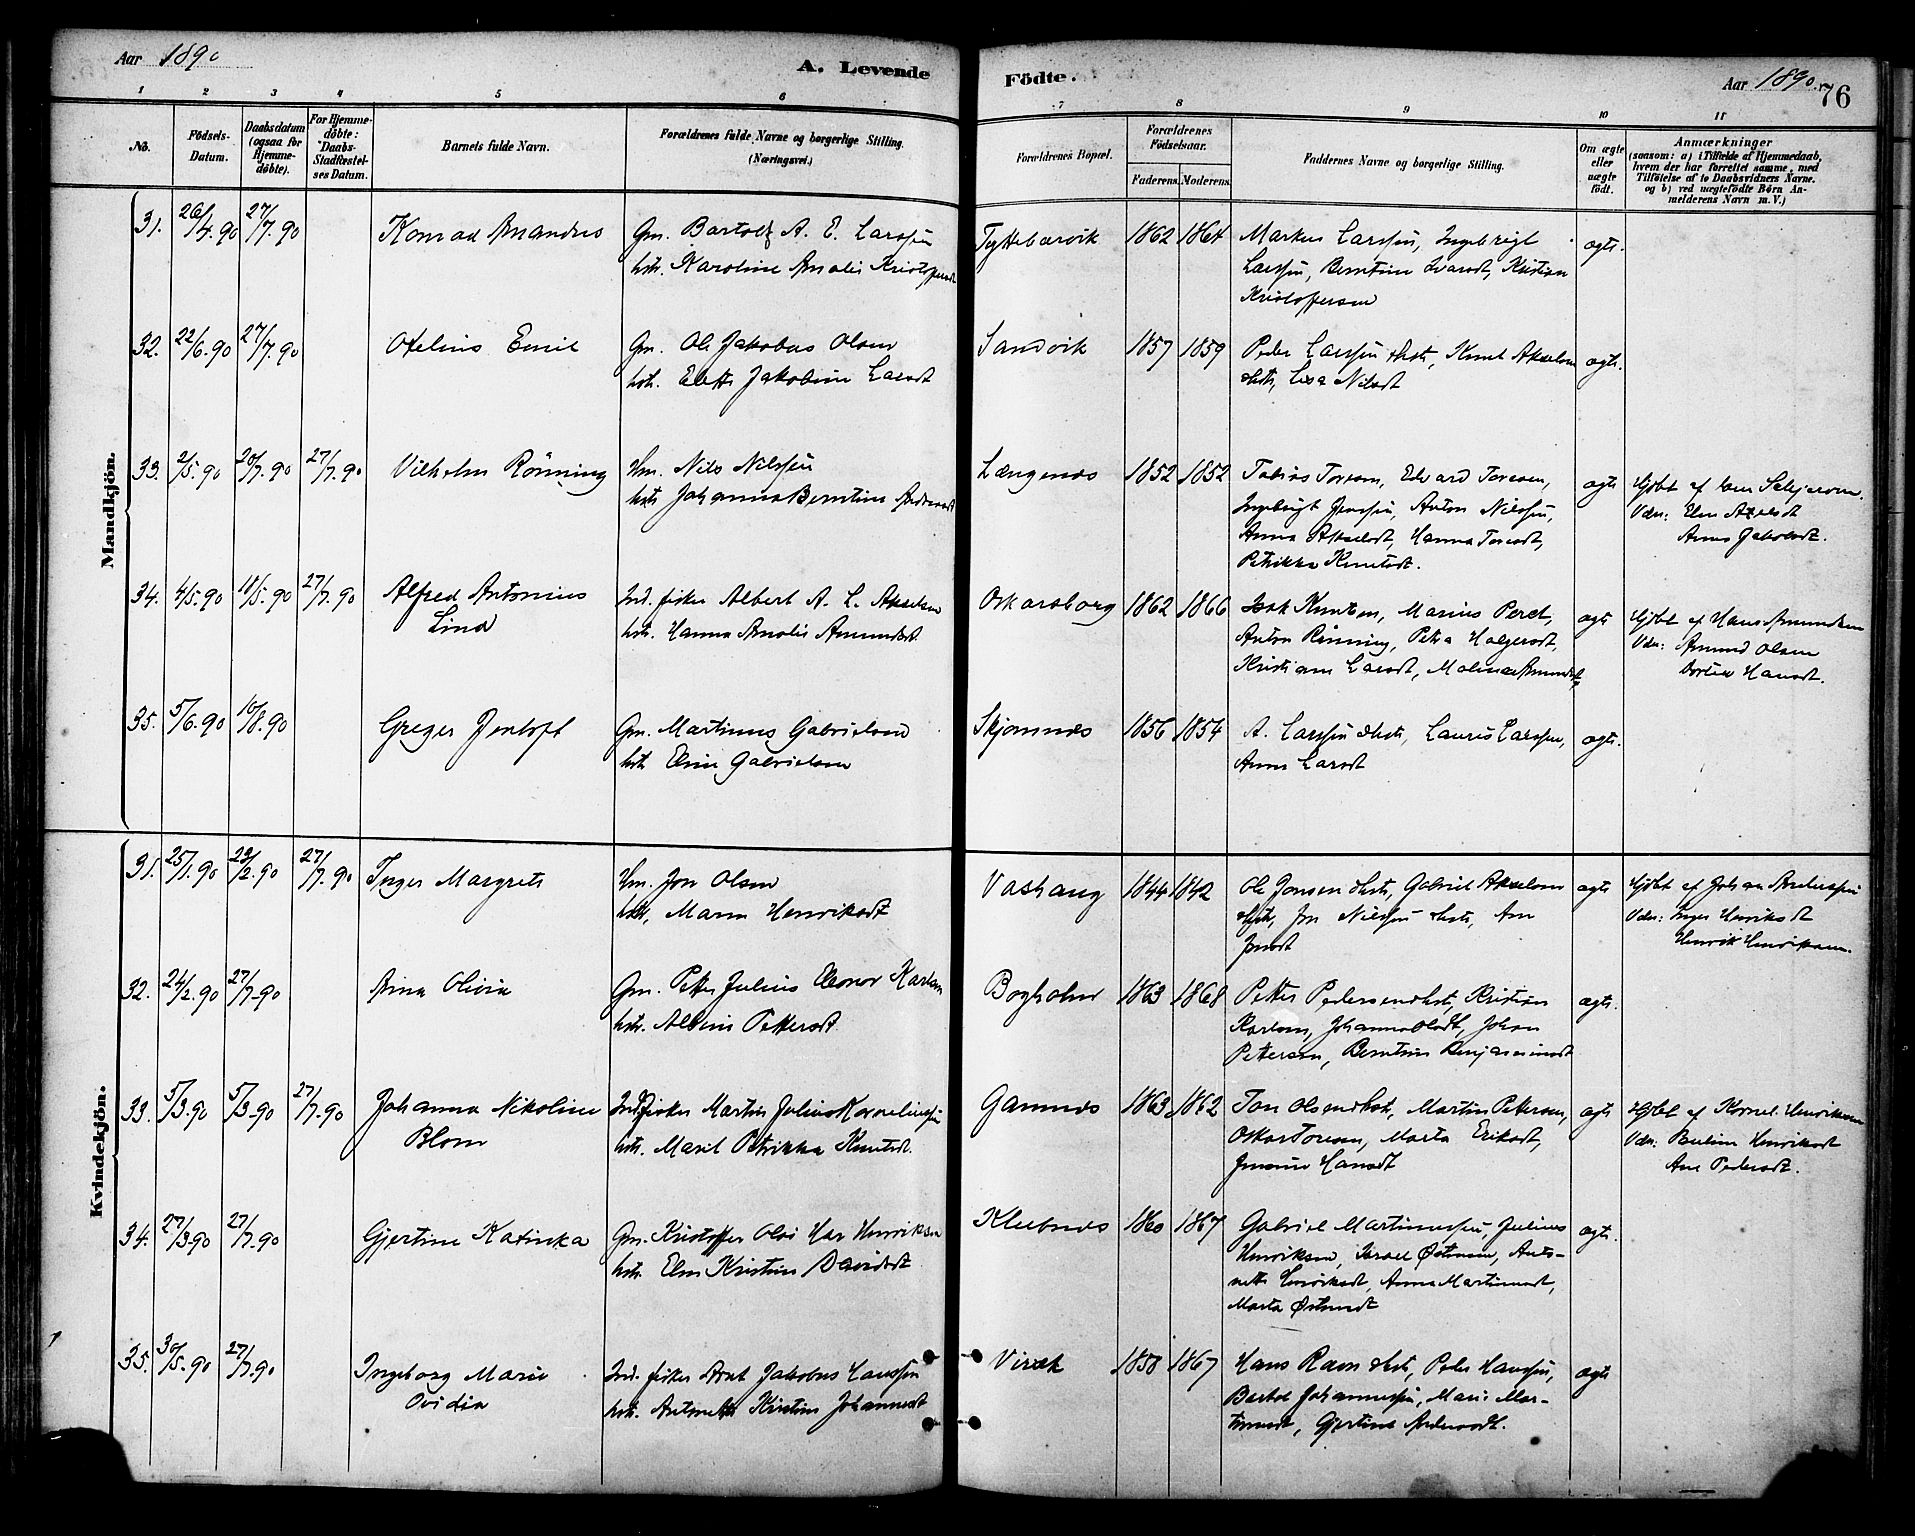 Aar 1890
A. Levende Fødte.
Aar 1890. 76
1 2 3 4 5 6 7 8 9 10 11
No.
Födsels-Datum.
Daabsdatum (ogsaa for Hjemme-døbte).
For Hjemme-døbte: Daabs-Stadfæstel-ses Datum.
Barnets fulde Navn.
Forældrenes fulde Navne og borgerlige Stilling.
(Næringsvei.)
Forældrenes Bopæl.
Forældrenes Födselsaar.
Faderens. Moderens.
Faddernes Navne og borgerlige Stilling.
Om ægte eller uægte født.
Anmærkninger
(saasom: a) i Tilfælde af Hjemmedaab, hvem der har forrettet samme, med Tilföielse af to Daabsvidners Navne. og b) ved uægtefödte Børn An-melderens Navn m. V.)
Mandkjön.
31. 26/4.90 27/7.90 Konrad Amandus
Gm. Bartolz A. E. Larssen
hst. Karoline Amalie Kristoffersdt
Tyttebærvik 1862 1864
Markus Larssen, Ingebrigt
Larssen, Berntine Ivarsdt, Kristian
Kristoffersen
ægte.
32. 22/6.90 27/7.90 Otelius Emil
Gm. Ole Jakobus Olsen
hst. Elette Jakobine Larsdt
Sandvik 1857 1859
Peder Larssen &hst, Knut Akselsen
&hst, Lisa Nilsdt
ægte.
33. 2/5.90 20/7.90 27/7.90 Vilhelm Rönning
Hm. Nils Nilssen
hst. Johanna Berntine Andersdt
Længenes 1852 1852
Tobias Toresen, Edvard Toresen,
Ingebrigt Jenssen, Anton Nilssen,
Anna Akselsdt, Hanna Toresdt,
Petrikka Knutsdt.
ægte
Hjdbt af
Vdn: Elen Akselsdt
Anne Jakobsdt.
34. 4/5.90 18/5.90 27/7.90 Alfred Antonius
Lind
Ind. fisker Albert A. L. Akselsen
hst. Hanna Amalie Amundsdt
Oskarsborg 1862 1866
Isak Knutsen, Marius
Anton Rönning, Petra Holgersdt,
Kristiane Larsdt, Malena Amundsdt
ægte
Hjdbt af Hans Amundsen
Vdn: Amund Olsen
Dortea Hansdt.
35. 5/6.90 10/8.90 Greger Jentoft
Gm. Martinus Gabrielsen
hst. Eline Gabrielsen
Skjomnes 1856 1854
A. Larssen &hst, Laurits Larssen,
Anna Larsdt
ægte.
Kvindekjön.
31. 25/1.90 23/2.90 27/7.90 Inger Margrete
Hm. Jon Olsen
hst, Maren Henriksdt
Vashaug 1844 1842
Ole Jonsen &hst, Gabriel Akselsen
&hst, Jon Nilssen &hst, Ane
Jonsdt
ægte
Hjdbt af Johan Anderssen
Vdn: Inger Henriksdt
Henrik Henriksen.
32. 24/2.90 27/7-90 Anna Olivia
Gm. Petter Julius Eleonor Karlsen
hst. Albine Pettersdt.
Bogholm 1863 1868
Petter Pedersen &hst, Kristian
Karlsen, Johanna Olsdt, Johan
Pettersen, Berntine Benjaminsdt
ægte.
33. 5/3.90 5/3-90 27/7-90 Johanna Nikoline
Blom
Ind. fisker Martin Julius Korneliussen
hst. Marit Petrikka Knutsdt.
Gamnes 1863 1862
Ton Olsen &hst, Martin Pettersen,
Oskar Toresen, Marta Eriksdt,
Jensine Hansdt
ægte
Hjdbt af Kornel. Henriksen
Vdn: Pauline Henriksdt
Ane Pedersdt.
34. 27/3.90 27/7-90 Gjertine Katinka
Gm. Kristoffer Olai Har Henriksen
hst. Elen Kristine Davidsdt
Klubnes 1860 1867
Gabriel Martinussen, Julius
Henriksen, Israel Østensen, Anto-
nette Henriksdt, Anna Martinusdt,
Marta Østensdt
ægte.
35. 30/5.90 27/7.90 Ingeborg Marie
Ovidia
Ind. fisker Arnt Jakobus Hanssen
hst. Antonette Kristine Johannesdt
Virak 1858 1867
Hans Ravn &hst, Peder Hanssen,
Bartol Johannessen, Marie Mar-
tinusdt, Gjertine Andersdt.
ægte